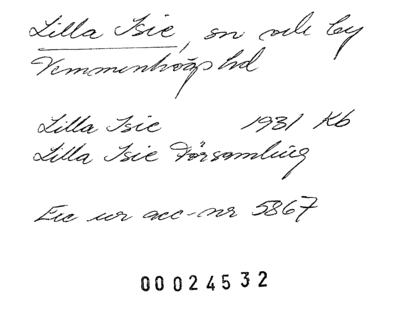 Lilla Isie, sn och by
Vemmenhögs hd
Lilla Isie 1931 Kb
Lilla Isie Församling
Exc ur acc-nr 5867
00024532